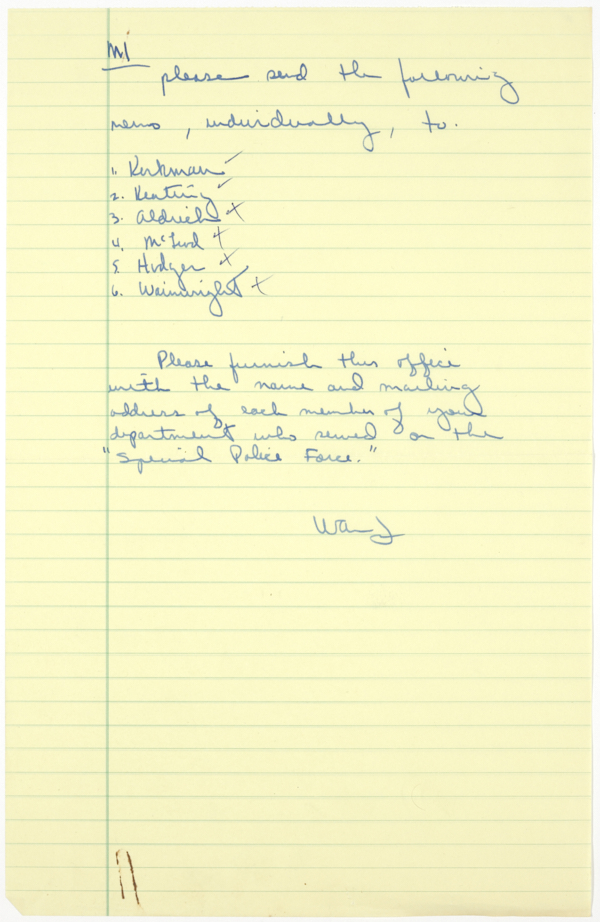 M
please send the following
memo, individually, to.
1. Kirkman ✓
2. Keating ✓
3. Aldrich +
4. McLeod +
5. Hodges +
6. Wainwright +
Please furnish this office
with the name and mailing
address of each member of your
department who served on the
"Special Police Force."